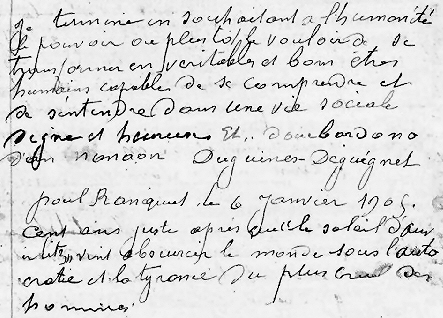 Je termine en souhaitant a l'humanité
le pouvoir ou plustot le vouloir de se
transformer en veritables et bons êtres
humains capables de se comprendre et
de s'entendre dans une vie sociale
digne et heureuse Et
Duguines-Déguignet
poul Ranquet le 6 Janvier 1905.
Cent ans juste apres que le soleil d'aus
vint obscurcir le monde sous l'auto
cratie et la tyrannie du plus cruel des
hommes